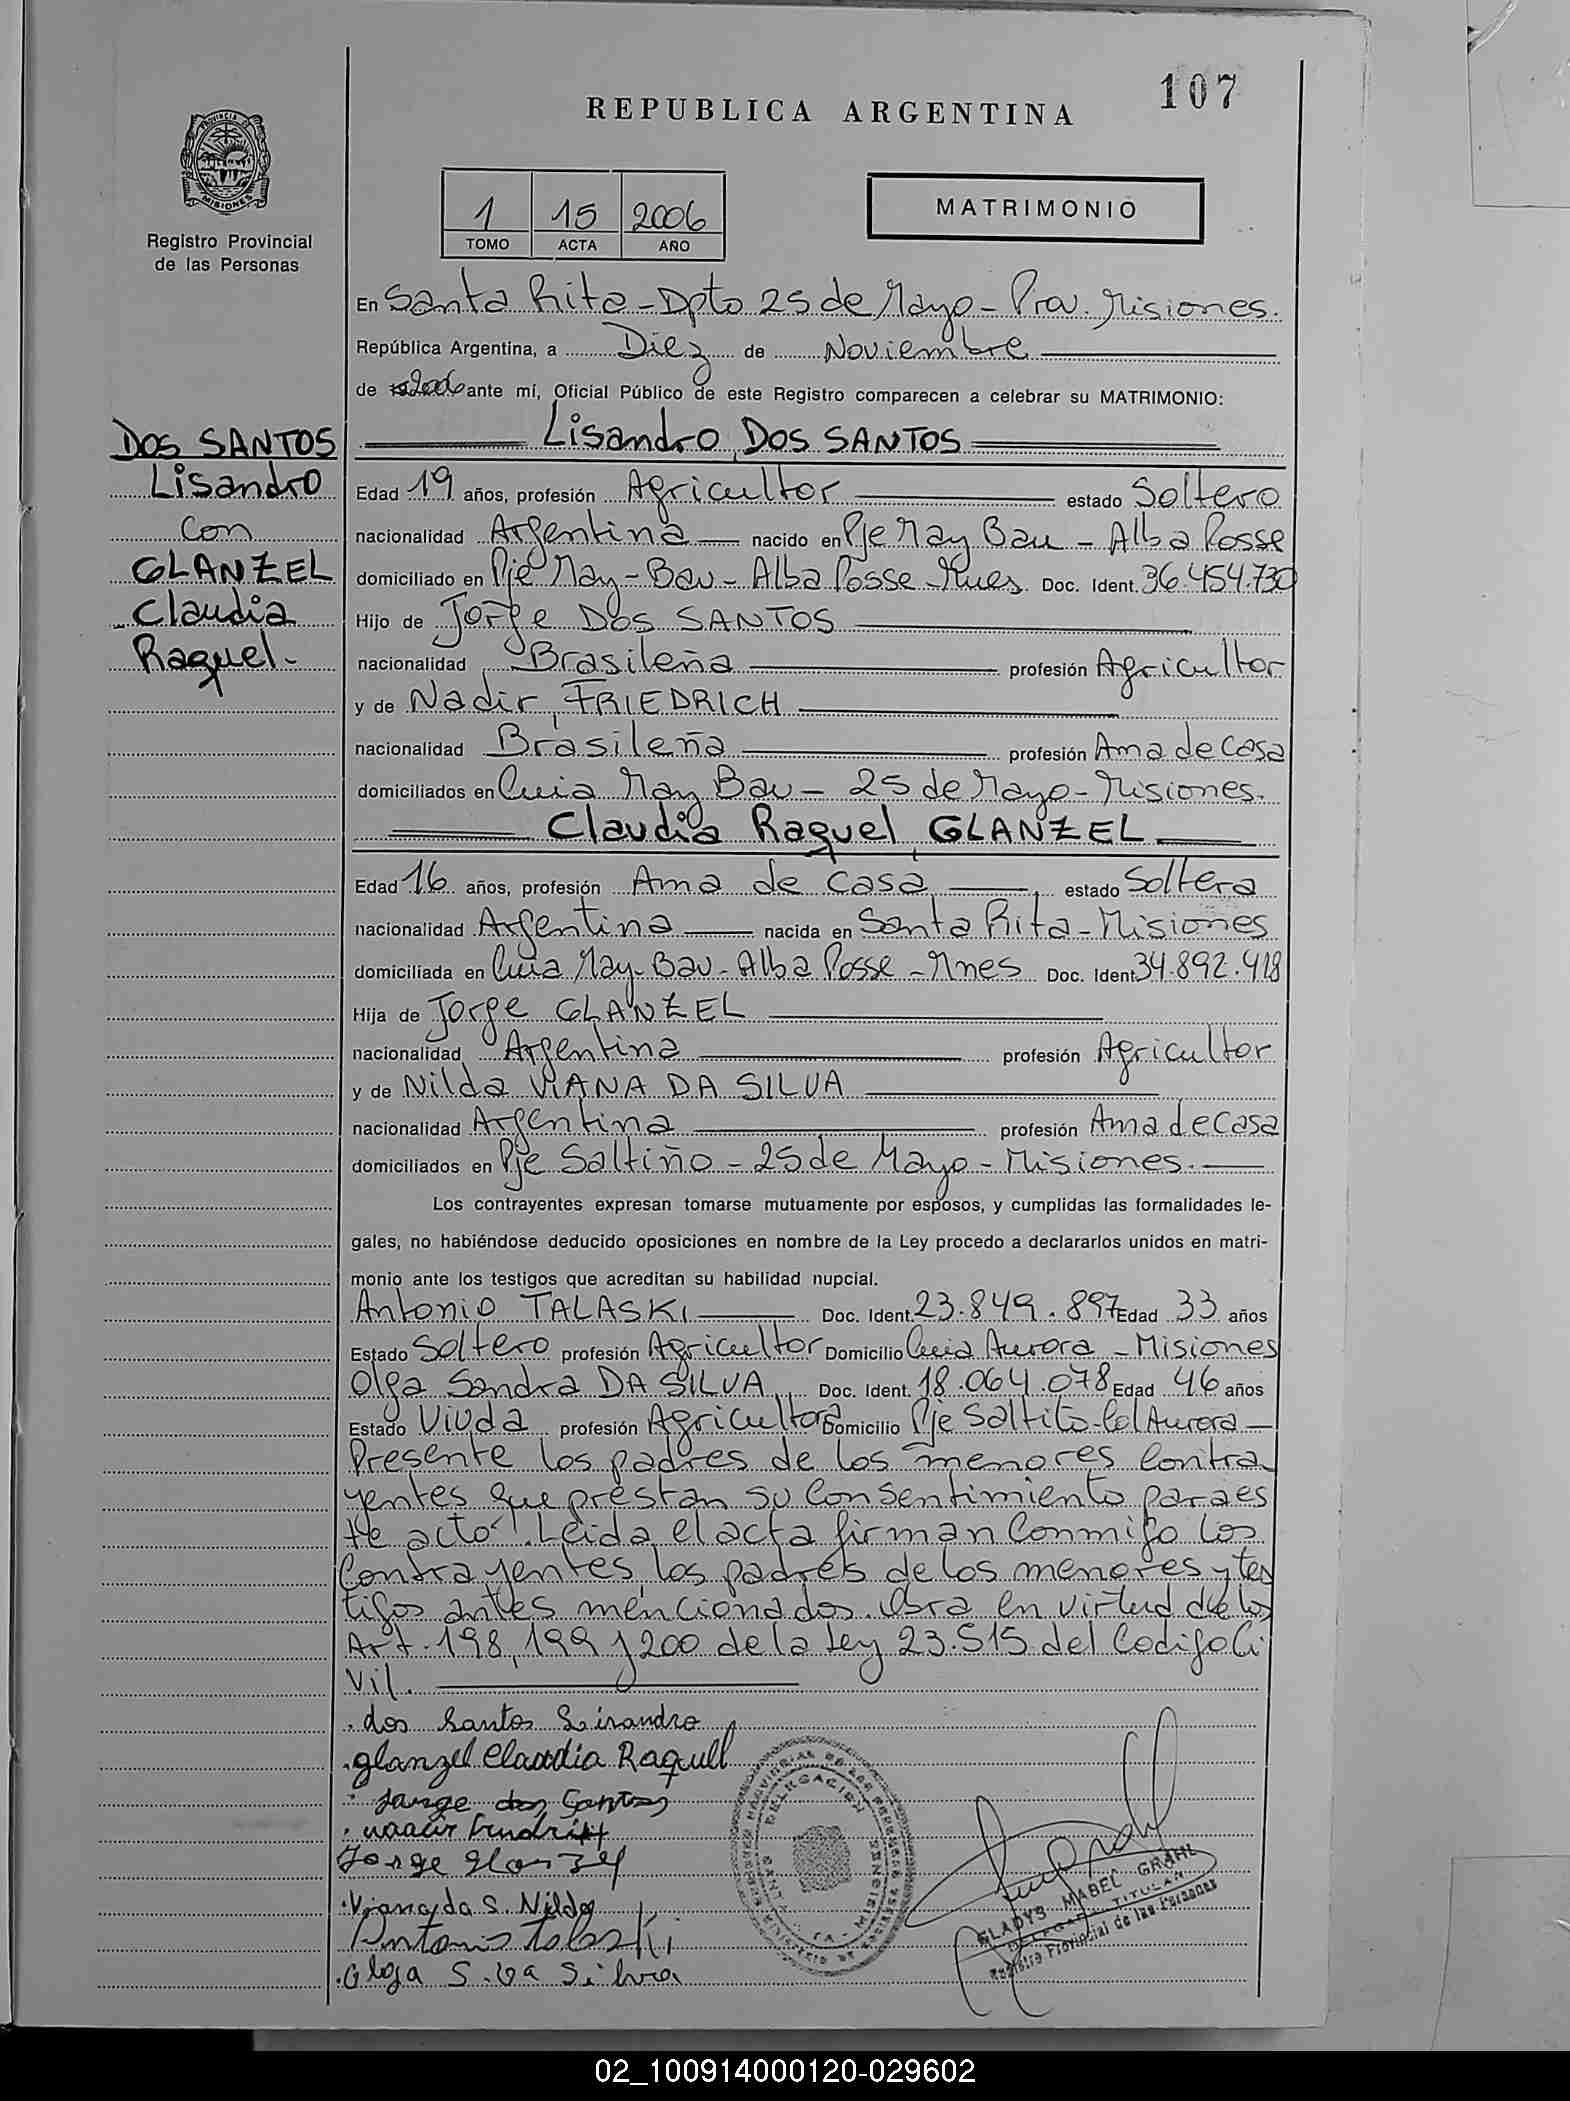 107
REPUBLICA ARGENTINA
PROVINCIA DE
MISIONES
Registro Provincial
de las Personas
1 15 2006
TOMO ACTA AÑO
MATRIMONIO
En Santa Rita - Dpto 25 de Mayo - Prov. Misiones.
República Argentina, a Diez de Noviembre
de 2006 ante mí, Oficial Público de este Registro comparecen a celebrar su MATRIMONIO:
DOS SANTOS
Lisandro
con
GLANZEL
Claudia
Raquel.-
Lisandro, DOS SANTOS
Edad 19 años, profesión Agricultor estado Soltero
nacionalidad Argentina nacido en Pje May Bau - Alba Posse
domiciliado en Pje May-Bau - Alba Posse - Mnes. Doc. Ident. 36.454.730
Hijo de Jorge DOS SANTOS
nacionalidad Brasileña profesión Agricultor
y de Nadir, FRIEDRICH
nacionalidad Brasileña profesión Ama de Casa
domiciliados en Cnia May Bau - 25 de Mayo - Misiones.
Claudia Raquel, GLANZEL
Edad 16 años, profesión Ama de Casa estado Soltera
nacionalidad Argentina nacida en Santa Rita - Misiones
domiciliada en Cnia May-Bau - Alba Posse - Mnes Doc. Ident. 34.892.418
Hija de Jorge GLANZEL
nacionalidad Argentina profesión Agricultor
y de Nilda VIANA DA SILVA
nacionalidad Argentina profesión Ama de Casa
domiciliados en Pje Saltiño - 25 de Mayo - Misiones.
Los contrayentes expresan tomarse mutuamente por esposos, y cumplidas las formalidades le-
gales, no habiéndose deducido oposiciones en nombre de la Ley procedo a declararlos unidos en matri-
monio ante los testigos que acreditan su habilidad nupcial.
Antonio TALASKI Doc. Ident. 23.849.897 Edad 33 años
Estado Soltero profesión Agricultor Domicilio Cnia Aurora - Misiones
Olga Sandra DA SILVA Doc. Ident. 18.064.078 Edad 46 años
Estado Viuda profesión Agricultora Domicilio Pje Saltito - Col Aurora -
Presente los padres de los menores Contra
yentes que prestan su Consentimiento para es
te acto. Leida el acta firman Conmigo los
Contrayentes, los padres de los menores y tes
tigos antes mencionados. Obra en virtud de los
Art. 198, 199 y 200 de la Ley 23.515 del Codigo Ci
vil.
dos Santos Lisandro
glanzel Claudia Raquel
Jorge dos Santos
Jorge Glanzel
Viana da S. Nilda
Antonio Talaski
Olga S. Da Silva
DELEGACION
GLADYS MABEL GRAHL
DELEGADA TITULAR
Registro Provincial de las Personas
02_100914000120-029602